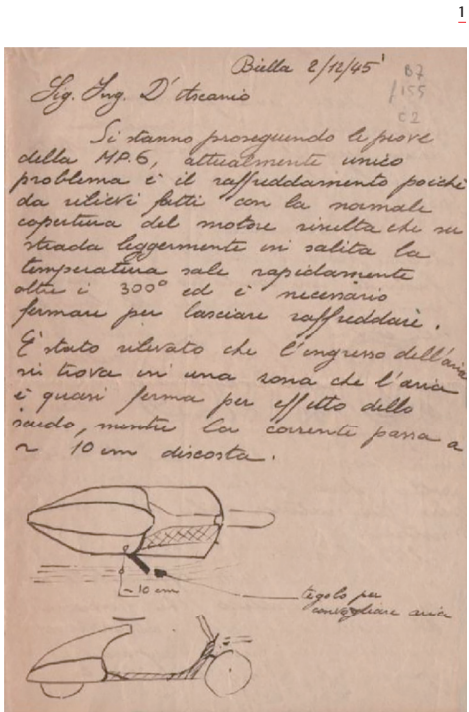 1
Biella 2/12/45
B7
/155
C2
Sig. Ing. D'Ascanio
Si stanno proseguendo le prove
della MP.6, attualmente unico
problema è il raffreddamento poichè
da rilievi fatti con la normale
copertura del motore risulta che su
strada leggermente in salita la
temperatura sale rapidamente
oltre i 300° ed è necessario
fermare per lasciare raffreddare.
E' stato rilevato che l'ingresso dell'aria
si trova in una zona che l'aria
è quasi ferma per effetto dello
scudo, mentre la corrente passa a
~ 10 cm discosta.
~ 10 cm
tegolo per
convogliare aria